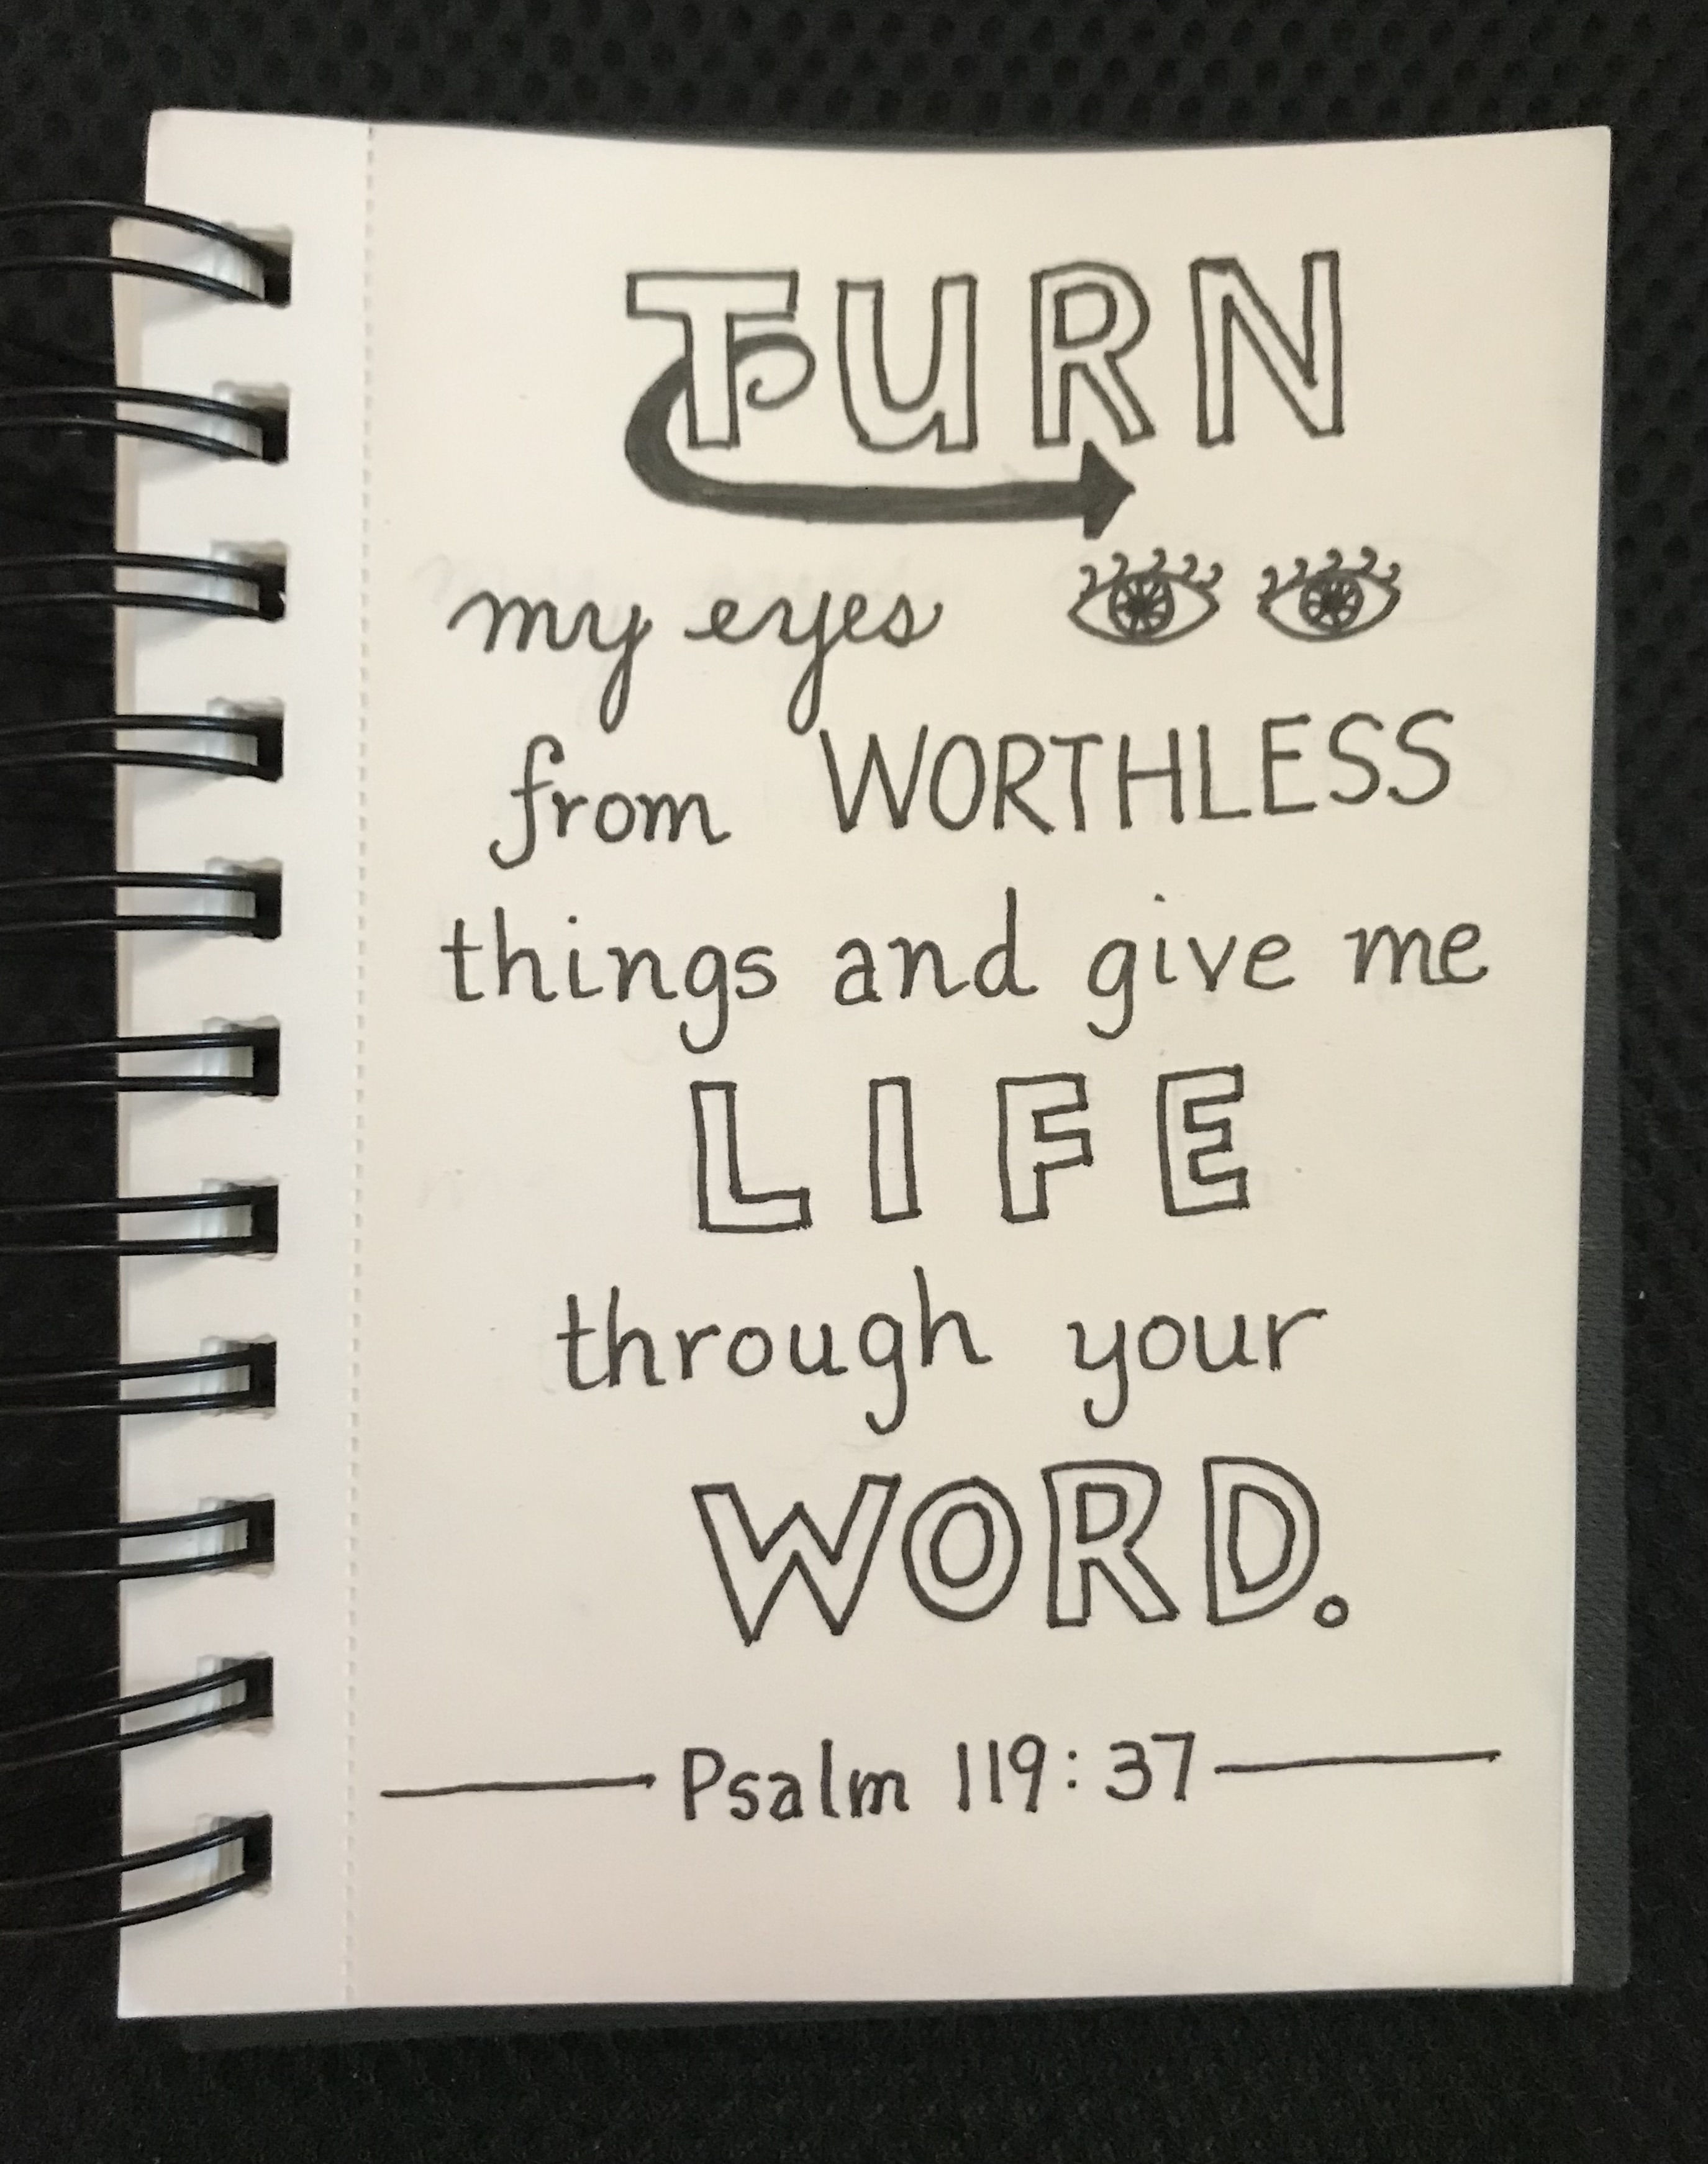 TURN
my eyes
from WORTHLESS
things and give me
LIFE
through your
WORD.
Psalm 119:37